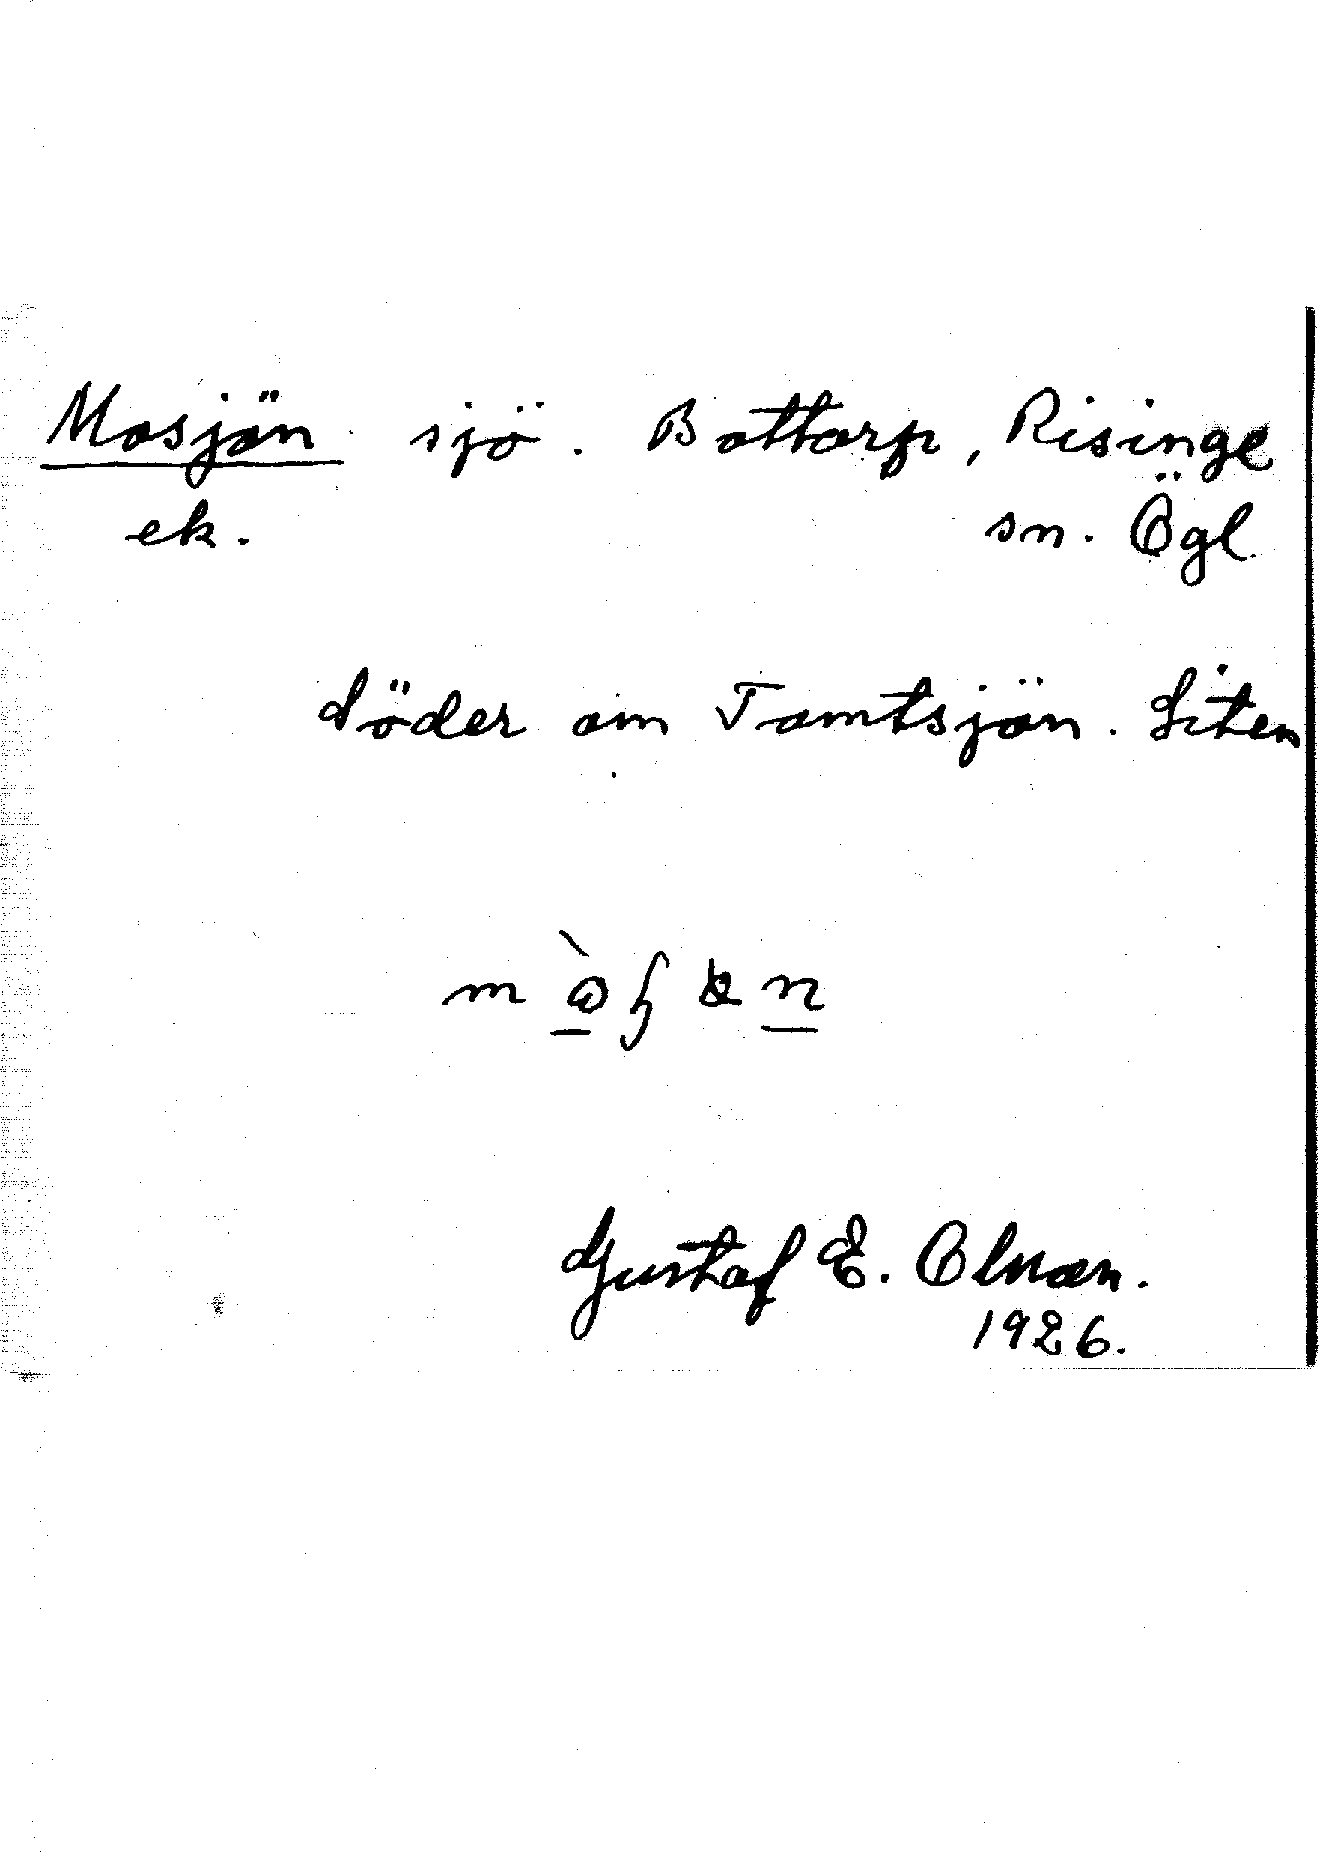 Mosjön sjö. Bottorp, Risinge
ek. sn. Ögl
Söder om Tomtsjön. Liten
Gustaf E. Olman.
1926.